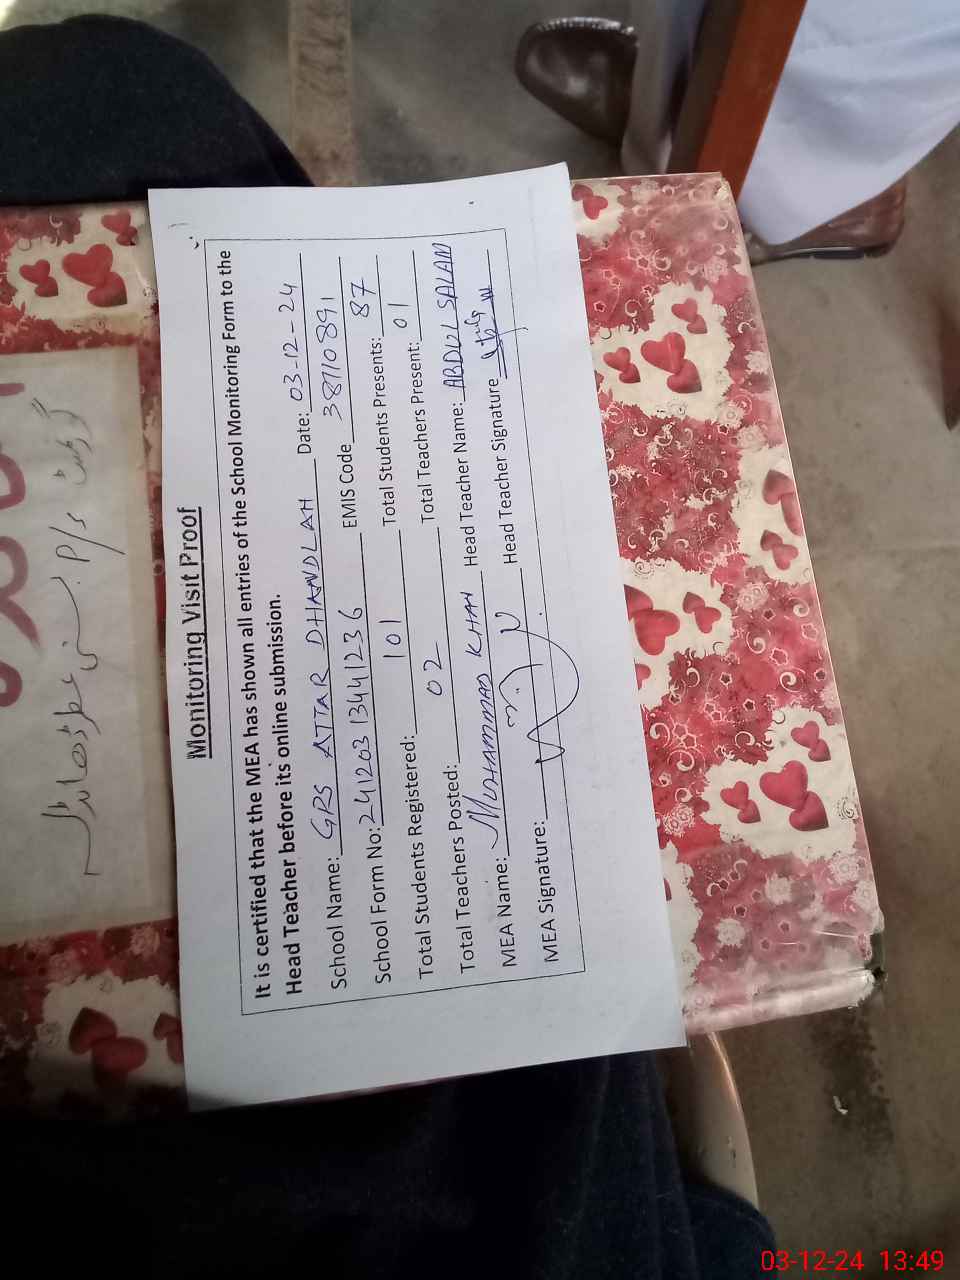 Monitoring Visit Proof
It is certified that the MEA has shown all entries of the School Monitoring Form to the
Head Teacher before its online submission.
School Name: GPS ATTAR DHANDLAH Date: 03-12-24
School Form No: 241203134441236 EMIS Code 38110891
Total Students Registered: 101 Total Students Presents: 87
Total Teachers Posted: 02 Total Teachers Present: 01
MEA Name: MUHAMMAD KHAN Head Teacher Name: ABDUL SALAM
MEA Signature: Head Teacher Signature
گورنمنٹ P/s
03-12-24 13:49